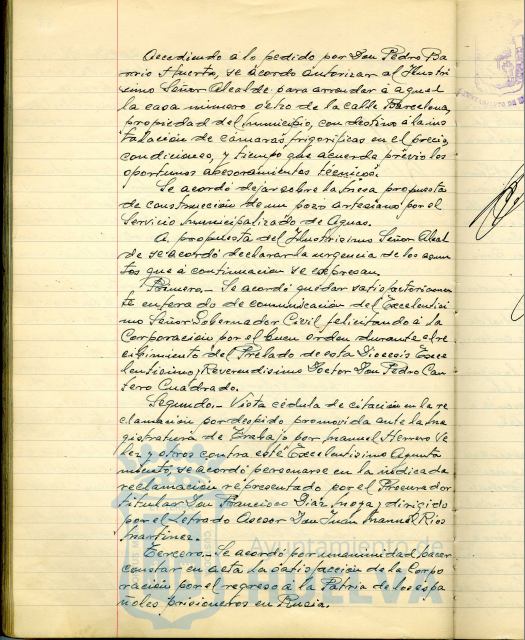 Accediendo á lo pedido por Don Pedro Ba
rrio Huerta, se acordó autorizar al Ilustrí
simo Señor Alcalde para arrendar á aquel
la casa número ocho de la calle Barcelona,
propiedad del municipio, con destino á la ins
talación de cámaras frigoríficas en el precio,
condiciones, y tiempo que acuerda previo los
oportunos asesoramientos técnicos.
Se acordó dejar sobre la mesa propuesta
de construcción de un pozo artesiano por el
Servicio Municipalizado de Aguas.
A propuesta del Ilustrísimo Señor Alcal
de se acordó declarar la urgencia de los asun
tos que á continuación se expresan.
Primero.- Se acordó quedar satisfactoriamen
te enterado de comunicación del Excelentísi
mo Señor Gobernador Civil felicitando á la
Corporación por el buen orden durante el re
cibimiento del Prelado de esta Diócesis Exce
lentísimo y Reverendísimo Doctor Don Pedro Can
tero Cuadrado.
Segundo.- Vista cédula de citación en la re
clamación por despido promovida ante la Ma
gistratura de Trabajo por Manuel Herrero Ve
lez y otros contra este Excelentísimo Ayunta
miento, se acordó personarse en la indicada
reclamación representado por el Procurador
titular Don Francisco Díaz y dirigido
por el Letrado Asesor Don Juan Manuel Rios
Martinez.
Tercero.- Se acordó por unanimidad hacer
constar en acta la satisfacción de la Corpo
ración por el regreso á la Patria de los espa
ñoles prisioneros en Rusia.
Ayuntamiento de
HUELVA